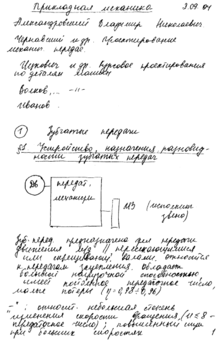 Прикладная механика 3.09.04
Александровский Владимир Николаевич.
Чернавский и др. Проектирование
механич. передач.
Цехнович и др. Курсовое проектирование
по деталям машин
Волков, .. —"—
Иванов.
① Зубчатые передачи
§1. Устройство, назначения разновид-
ности зубчатых передач
ДВ передат. механизм ИЗ (исполнит.
звено)
Зуб. перед. предназначена для передачи
движения между пересекающимися
или скрещивающ. валами, относится
к передачам зацепления. Обладает
большой нагрузочной способностью,
имеет постоянное передаточное число,
малые потери (η = 0,98 ÷ 0,96)
"-": относит. небольшая степень
изменения скорости вращения, (u ≤ 8 -
передаточное число); повышенный шум
при больших скоростях